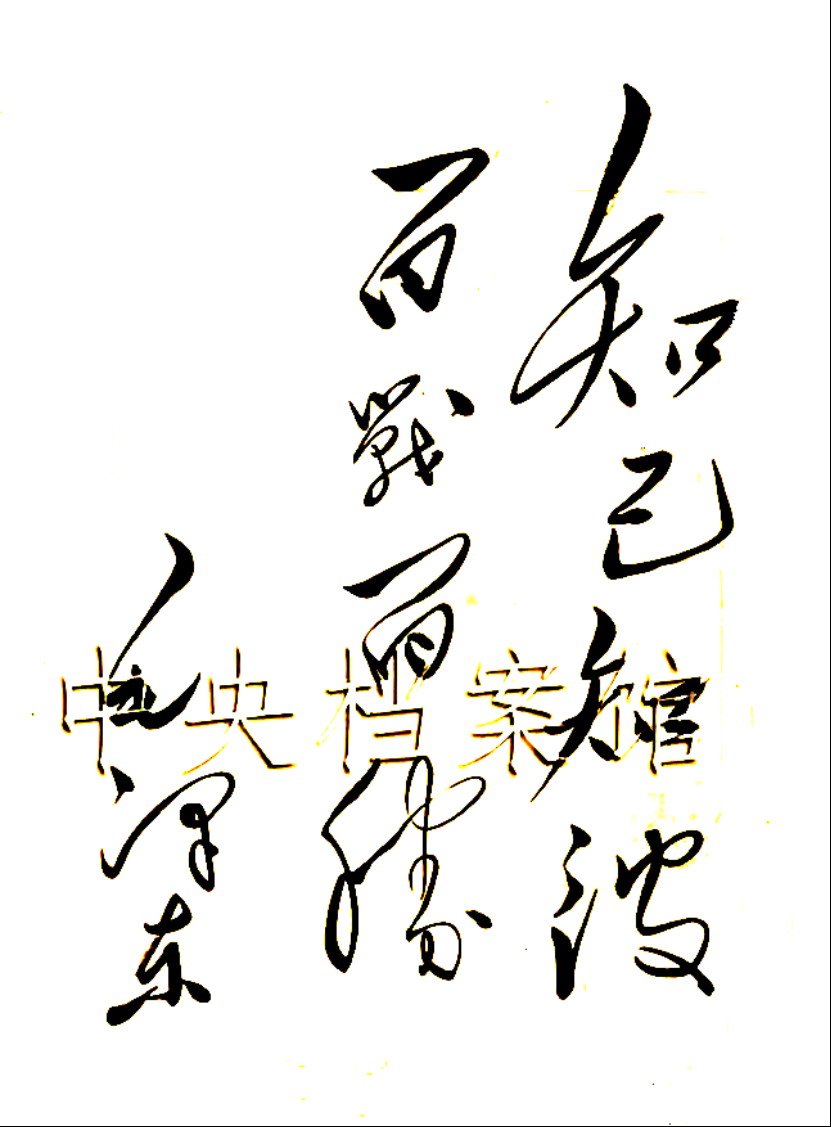 知己知彼
百戰百勝
毛泽东
中央档案馆